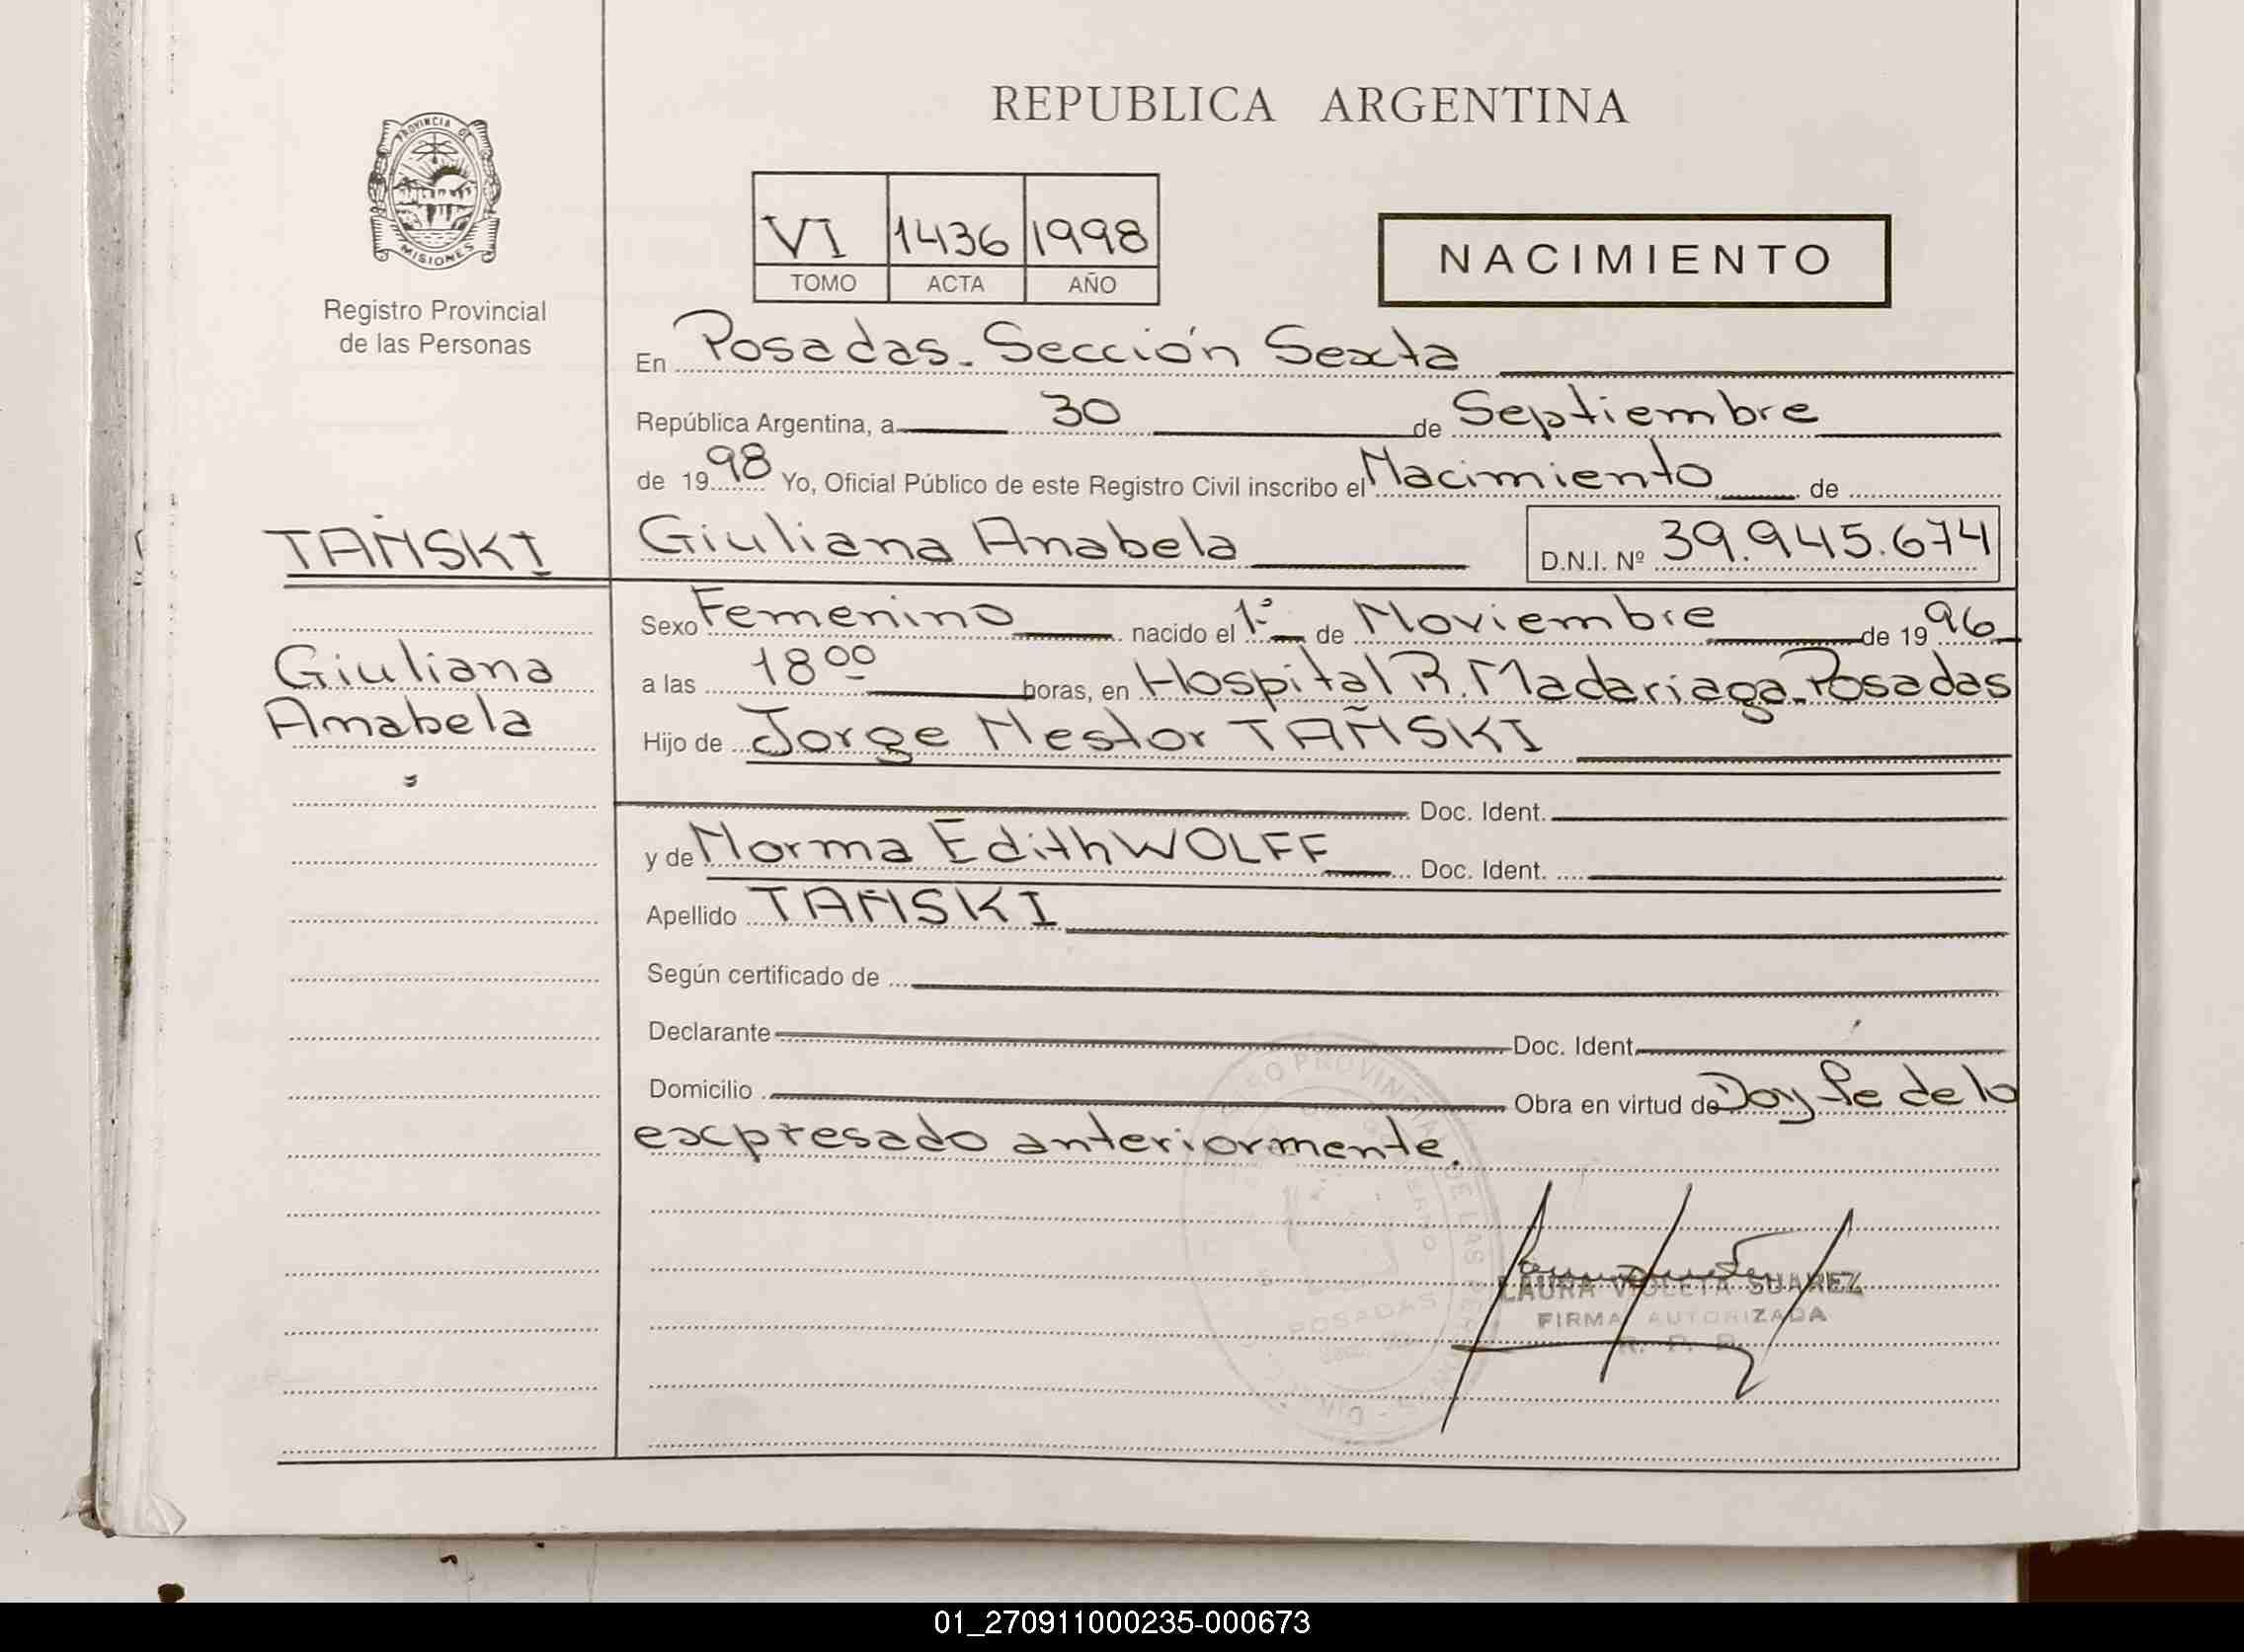 REPUBLICA ARGENTINA
PROVINCIA DE
MISIONES
Registro Provincial
de las Personas
VI 1436 1998
TOMO ACTA AÑO
NACIMIENTO
En Posadas. Sección Sexta
República Argentina, a 30 de Septiembre
de 1998 Yo, Oficial Público de este Registro Civil inscribo el Nacimiento de
TAÑSKI
Giuliana Anabela D.N.I. Nº 39.945.674
Sexo Femenino nacido el 1º de Noviembre de 1996
Giuliana
Anabela
a las 18⁰⁰ horas, en Hospital R. Madariaga. Posadas
Hijo de Jorge Nestor TAÑSKI
Doc. Ident.
y de Norma Edith WOLFF Doc. Ident.
Apellido TAÑSKI
Según certificado de
Declarante Doc. Ident.
Domicilio Obra en virtud de Doy fe de lo
expresado anteriormente.
LAURA VIOLETA SUAREZ
FIRMA AUTORIZADA
R. P. P.
POSADAS
01_270911000235-000673